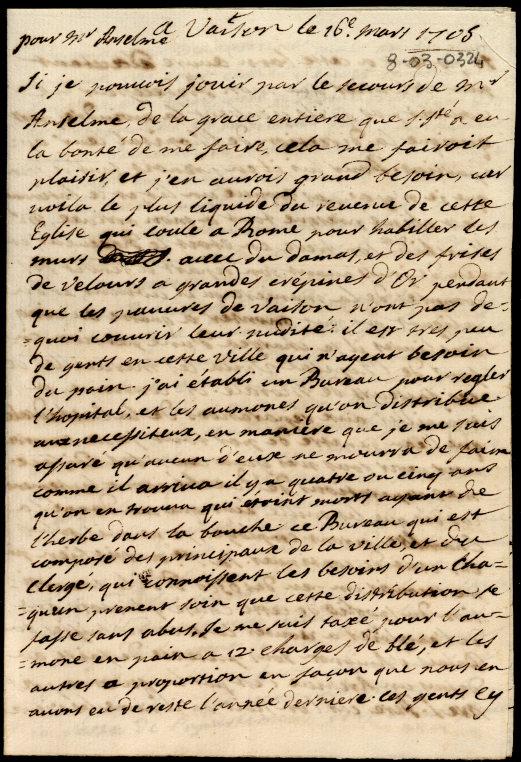 pour mr Anselme a Vaison le 16e. mars 1705
8-03-0324
Si je pouvois jouir par le secours de mr
Anselme, de la grace entiere que s. sté a eu
la bonté de me faire, cela me fairoit
plaisir, et j'en aurois grand besoin, car
voila le plus liquide du revenu de cette
Eglise qui coule a Rome pour habiller les
murs avec du damas, et des frises
de velours a grandes crépines d'Or pendant
que les pauvres de Vaison, n'ont pas de-
=quoi couvrir leur nudité: il est tres peu
de gents en cette ville qui n'ayent besoin
du pain. j'ai établi un Bureau pour regler
l'hopital, et les aumones qu'on distribue
aux necessiteux, en maniére que je me suis
assuré qu'aucun d'eux ne mourra de faim
comme il arriva il y a quatre ou cinq ans
qu'on en trouva qui étoint morts ayant de
l'herbe dans la bouche ce Bureau qui est
composé des principaux de la ville, et du
Clergé, qui connoissent les besoins d'un Cha-
=qu'un prenent soin que cette distribution se
fasse sans abus. Je me suis taxé pour l'au-
=mone en pain a 12 charges de blé, et les
autres a proportion en façon que nous en
avons eu de reste l'année derniere. ces gents cy-